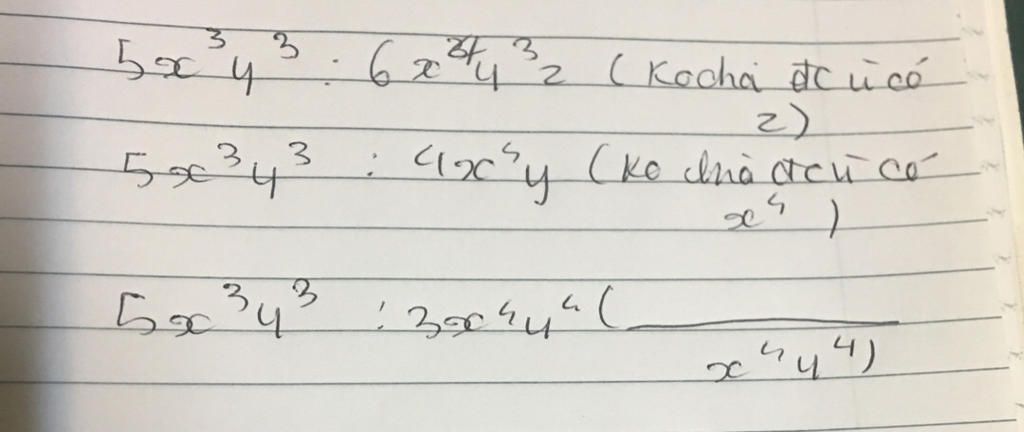 5x³y³ : 6x³y³z (Ko chả đc vì có
z)
5x³y³ : 4x⁴y (Ko chả đc vì có
x⁴)
5x³y³ : 3x⁴y⁴ (______
x⁴y⁴)